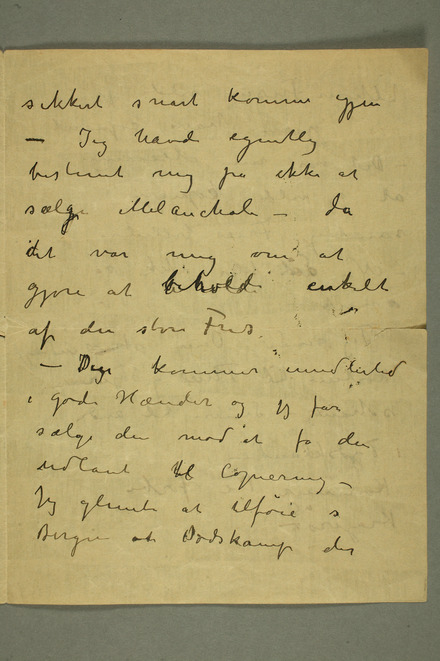 sikkert snart komme igjen
– Jeg havde egentlig
bestemt mig på ikke at
sælge Melankoli – da
det var mig om at
gjøre at beholde enkelt
af den store Fris
– Den kommer imidlertid
i gode Hænder og jeg får
sælge den mod at få den
udlånt til Copiering –
Jeg glemte at tilføie
Bergen at Dødskamp der